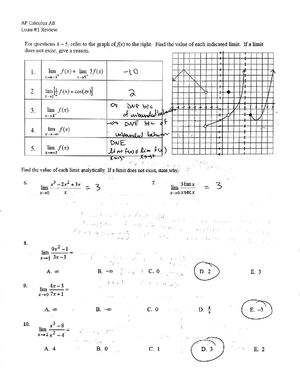 AP Calculus AB
Exam #1 Review
For questions 1 – 5, refer to the graph of f(x) to the right. Find the value of each indicated limit. If a limit
does not exist, give a reason.
1. lim f(x) + lim 3f(x) -10
2. lim [½ f(x) + cos(πx)] 2
3. lim f(x) = ∞ DNE b/c of unbounded behavior
4. lim f(x) = ∞ DNE b/c of unbounded behavior
5. lim f(x) DNE lim f(x) ≠ lim f(x)
Find the value of each limit analytically. If a limit does not exist, state why.
6. lim x→0 (x³ – 2x² + 3x)/x = 3
7. lim x→0 3 tan x / x sec x = 3
8. lim (9x² – 1)/(3x – 1) =
A. ∞ B. –∞ C. 0 D. 2 E. 3
9. lim x→0 (4x – 3)/(7x + 1) =
A. ∞ B. –∞ C. 0 D. 4/7 E. –3
10. lim x→2 (x³ – 8)/(x² – 4) =
A. 4 B. 0 C. 1 D. 3 E. 2